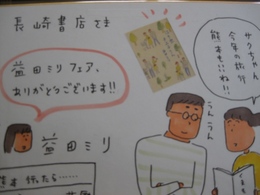 長崎書店さま
益田ミリフェア、
ありがとうございます!!
益田ミリ
サクちゃん
今年の旅行
熊本もいいね!!
うんうん
熊本行ったら……